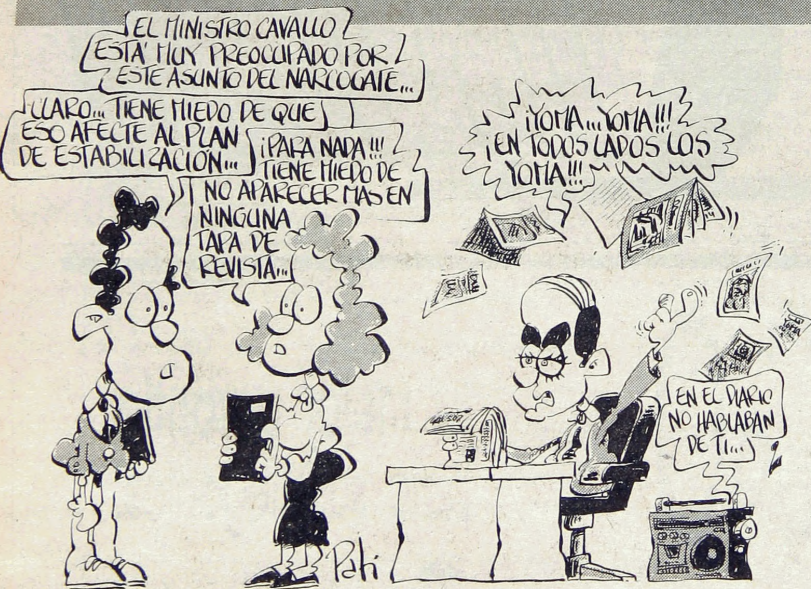 EL MINISTRO CAVALLO
ESTÁ MUY PREOCUPADO POR
ESTE ASUNTO DEL NARCOGATE...
CLARO... TIENE MIEDO DE QUE
ESO AFECTE AL PLAN
DE ESTABILIZACIÓN...
¡PARA NADA!!!
TIENE MIEDO DE
NO APARECER MAS EN
NINGUNA
TAPA DE
REVISTA...
¡YOMA...YOMA!!!
¡EN TODOS LADOS LOS
YOMA!!!
EN EL DIARIO
NO HABLABAN
DE TI...
YOMA
Pati